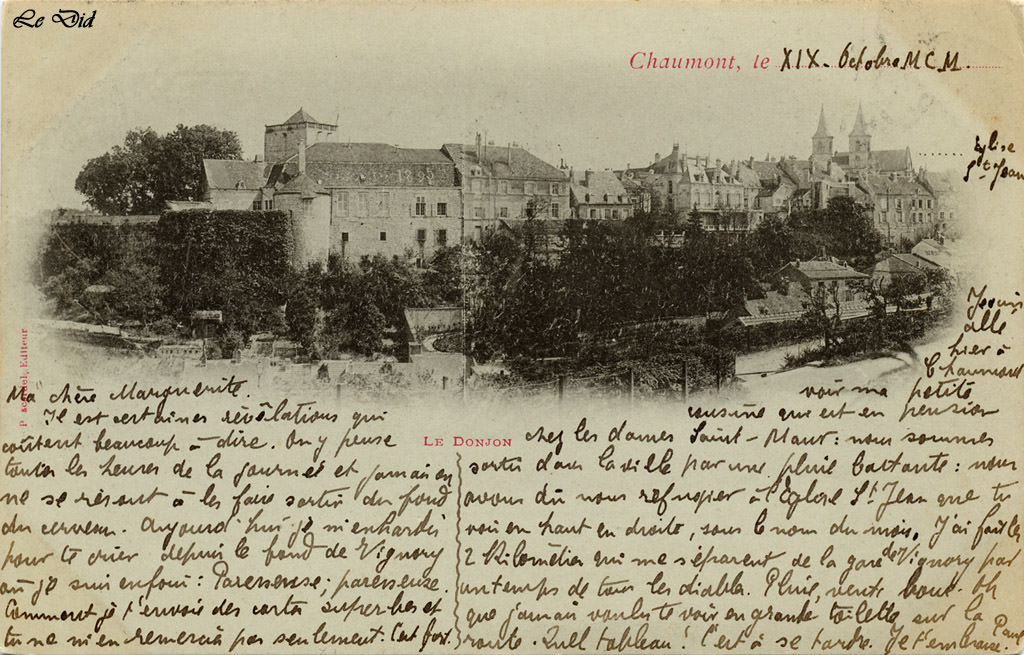 Le Did
Chaumont, le XIX - Octobre MCM.
Eglise
St Jean
1395
P editeur, Editeur
LE DONJON
Ma chère Marguerite.
Il est certaines révélations qui
coûtent beaucoup à dire. On y pense
toutes les heures de la journée et jamais on
ne se résout à les faire sortir du fond
du cerveau. Aujourd'hui je m'enhardis
pour te crier depuis le fond de Vignory
où je suis enfoui : Paresseuse, paresseuse.
Comment je t'envoie des cartes superbes et
tu ne m'en remercies pas seulement. C'est fort.
Je suis
allé
hier à
Chaumont
voir ma petite
cousine qui est en pension
chez les dames Saint-Maur : nous sommes
sortis dans la ville par une pluie battante : nous
avons dû nous réfugier à l'Eglise St Jean que tu
vois en haut en droite, sous le nom du mois. J'ai fait les
2 kilomètres qui me séparent de la gare de Vignory par
un temps de tous les diables. Pluie, vent, boue. Oh
que j'aurais voulu te voir en grande toilette sur la
route. Quel tableau ! C'est à se tordre. Je t'embrasse.
Paul